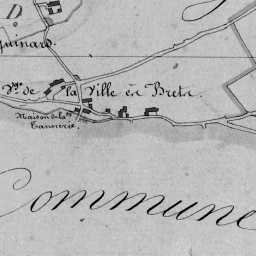 D
Guinard.
Vge de la Ville en Brete.
Maison de la
Tannerie.
Commune